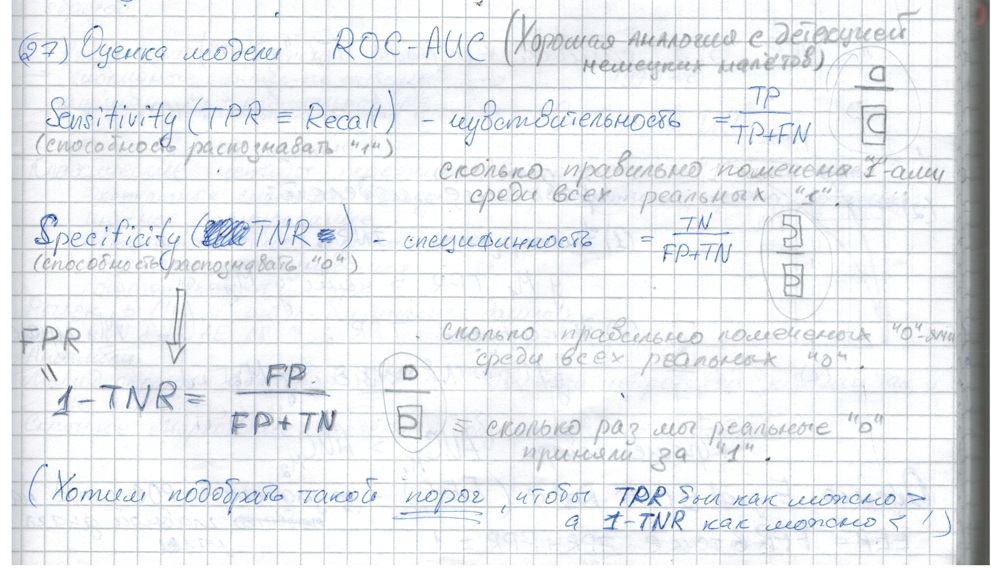 (27) Оценка модели ROC-AUC (Хорошая аналогия с детекцией
немецких налётов)
Sensitivity (TPR ≡ Recall) – чувствительность = TP / TP+FN
(способность распознавать "1")
сколько правильно помечена "1"-ами
среди всех реальных "1".
Specificity (TNR) – специфичность = TN / FP+TN
(способность распознавать "0")
сколько правильно помеченых "0"-ями
среди всех реальных "0".
FPR
"
1-TNR = FP / FP+TN
≡ сколько раз мы реальные "0"
приняли за "1".
(Хотим подобрать такой порог, чтобы TPR был как можно >
а 1-TNR как можно < !)